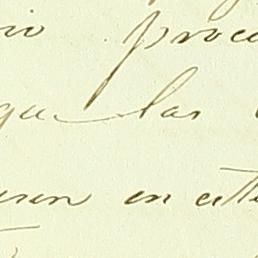 io procu
que las
eren en este